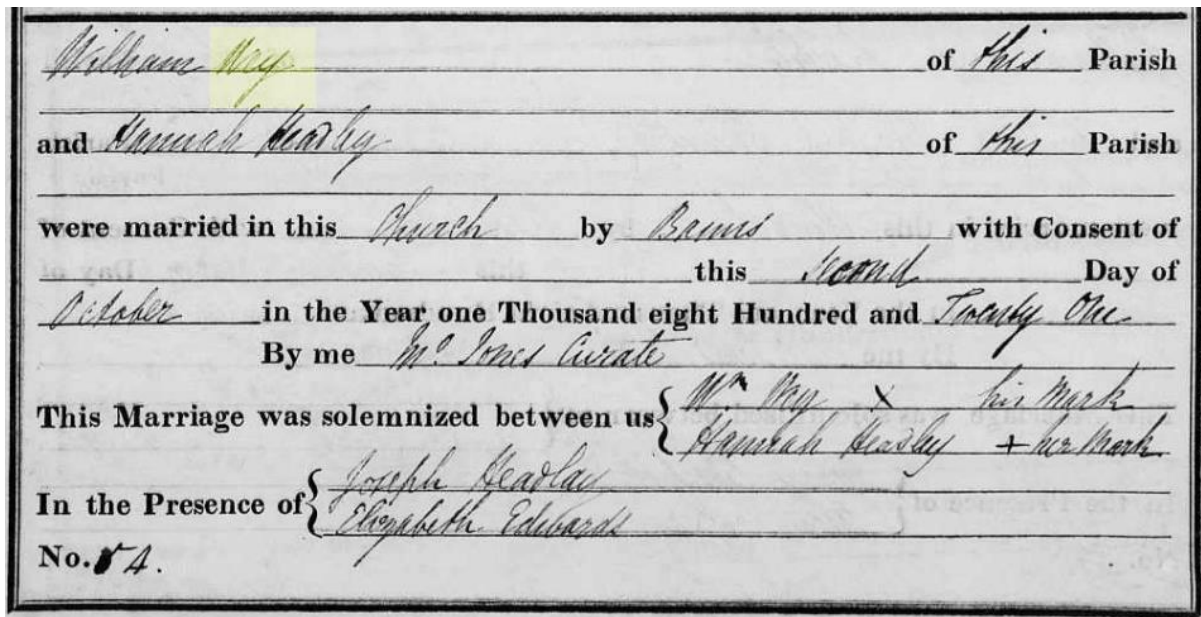 William Wey of this Parish
and Hannah Headley of this Parish
were married in this Church by Banns with Consent of
this second Day of
October in the Year one Thousand eight Hundred and Twenty One
By me Wm Jones Curate
This Marriage was solemnized between us { Wm Wey X his Mark
Hannah Headley + her Mark
In the Presence of { Joseph Headlay
Elizabeth Edwards
No. 54.